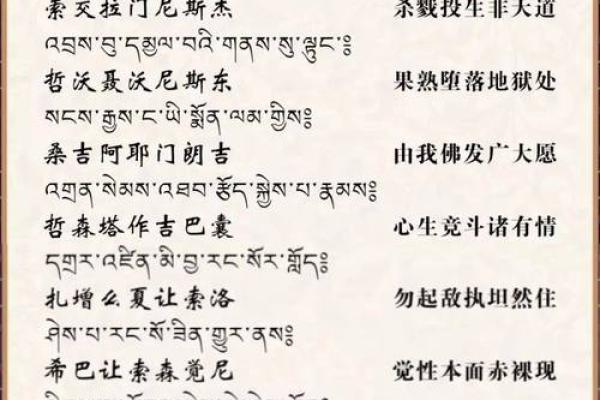 索交拉门尼斯杰 杀戮投生非天道
འབྲས་བུ་དམྱལ་བའི་གནས་སུ་ལྟུང་༔
哲沃聂沃尼斯东 果熟堕落地狱处
སངས་རྒྱས་ང་ཡི་སྨོན་ལམ་གྱིས༔
桑吉阿耶门朗吉 由我佛发广大愿
འགྲན་སེམས་འཐབ་རྩོད་སྐྱེས་པ་རྣམས༔
哲森塔作吉巴囊 心生竞斗诸有情
དགྲར་འཛིན་མི་བྱ་རང་སོར་གློད༔
扎增么夏让索洛 勿起敌执坦然住
ཤེས་པ་རང་སོ་ཟིན་གྱུར་ནས༔
希巴让索森觉尼 觉性本面赤裸现